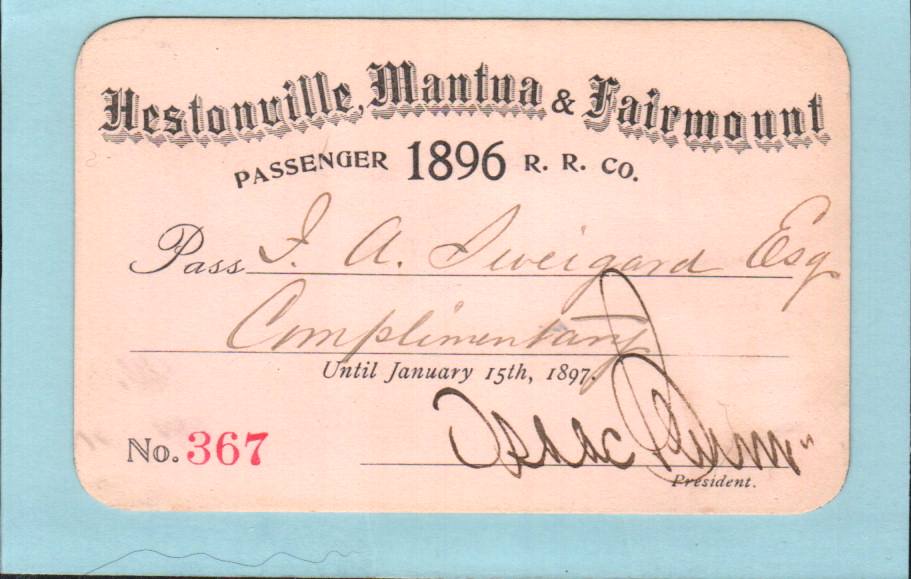 Hestonville, Mantua & Fairmount
PASSENGER 1896 R. R. CO.
Pass I. A. Sweigard Esq
Complimentary
Until January 15th, 1897.
No. 367
Isaac
President.